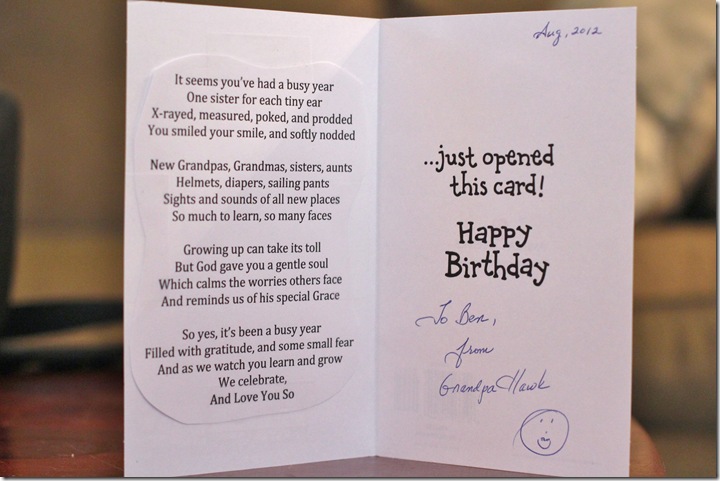 It seems you've had a busy year
One sister for each tiny ear
X-rayed, measured, poked, and prodded
You smiled your smile, and softly nodded
New Grandpas, Grandmas, sisters, aunts
Helmets, diapers, sailing pants
Sights and sounds of all new places
So much to learn, so many faces
Growing up can take its toll
But God gave you a gentle soul
Which calms the worries others face
And reminds us of his special Grace
So yes, it's been a busy year
Filled with gratitude, and some small fear
And as we watch you learn and grow
We celebrate,
And Love You So
Aug, 2012
...just opened
this card!
Happy
Birthday
To Ben,
from
Grandpa Hawk